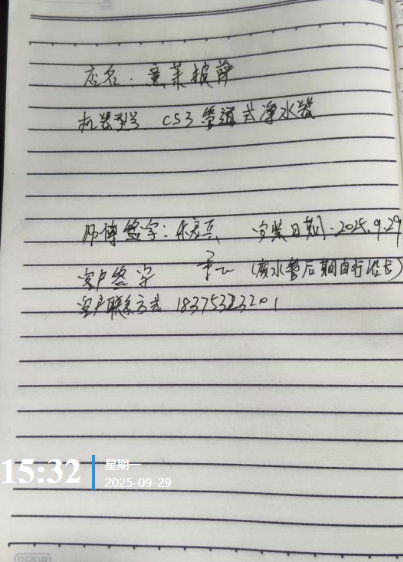 店名：意莱披萨
机器型号 CS3 管道式净水器
师傅签字： 安装日期：2025.9.29
客户签字 （废水管后期自行延长）
客户联系方式
15:32 星期一
2025-09-29